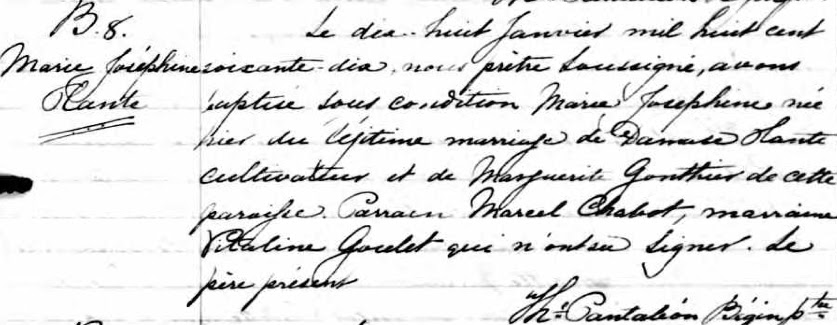 B. 8.
Marie Joséphine
Plante
Le dix-huit Janvier mil huit cent
soixante-dix, nous prêtre soussigné, avons
baptisé sous condition Marie Josephine née
hier du légitime marriage de Damase Plante
cultivateur et de Marguerite Gonthier de cette
paroisse. Parrain Marcel Chabot, marraine
Vitaline Goulet qui n'ont su signer. Le
père présent
Pantaléon Bégin ptre